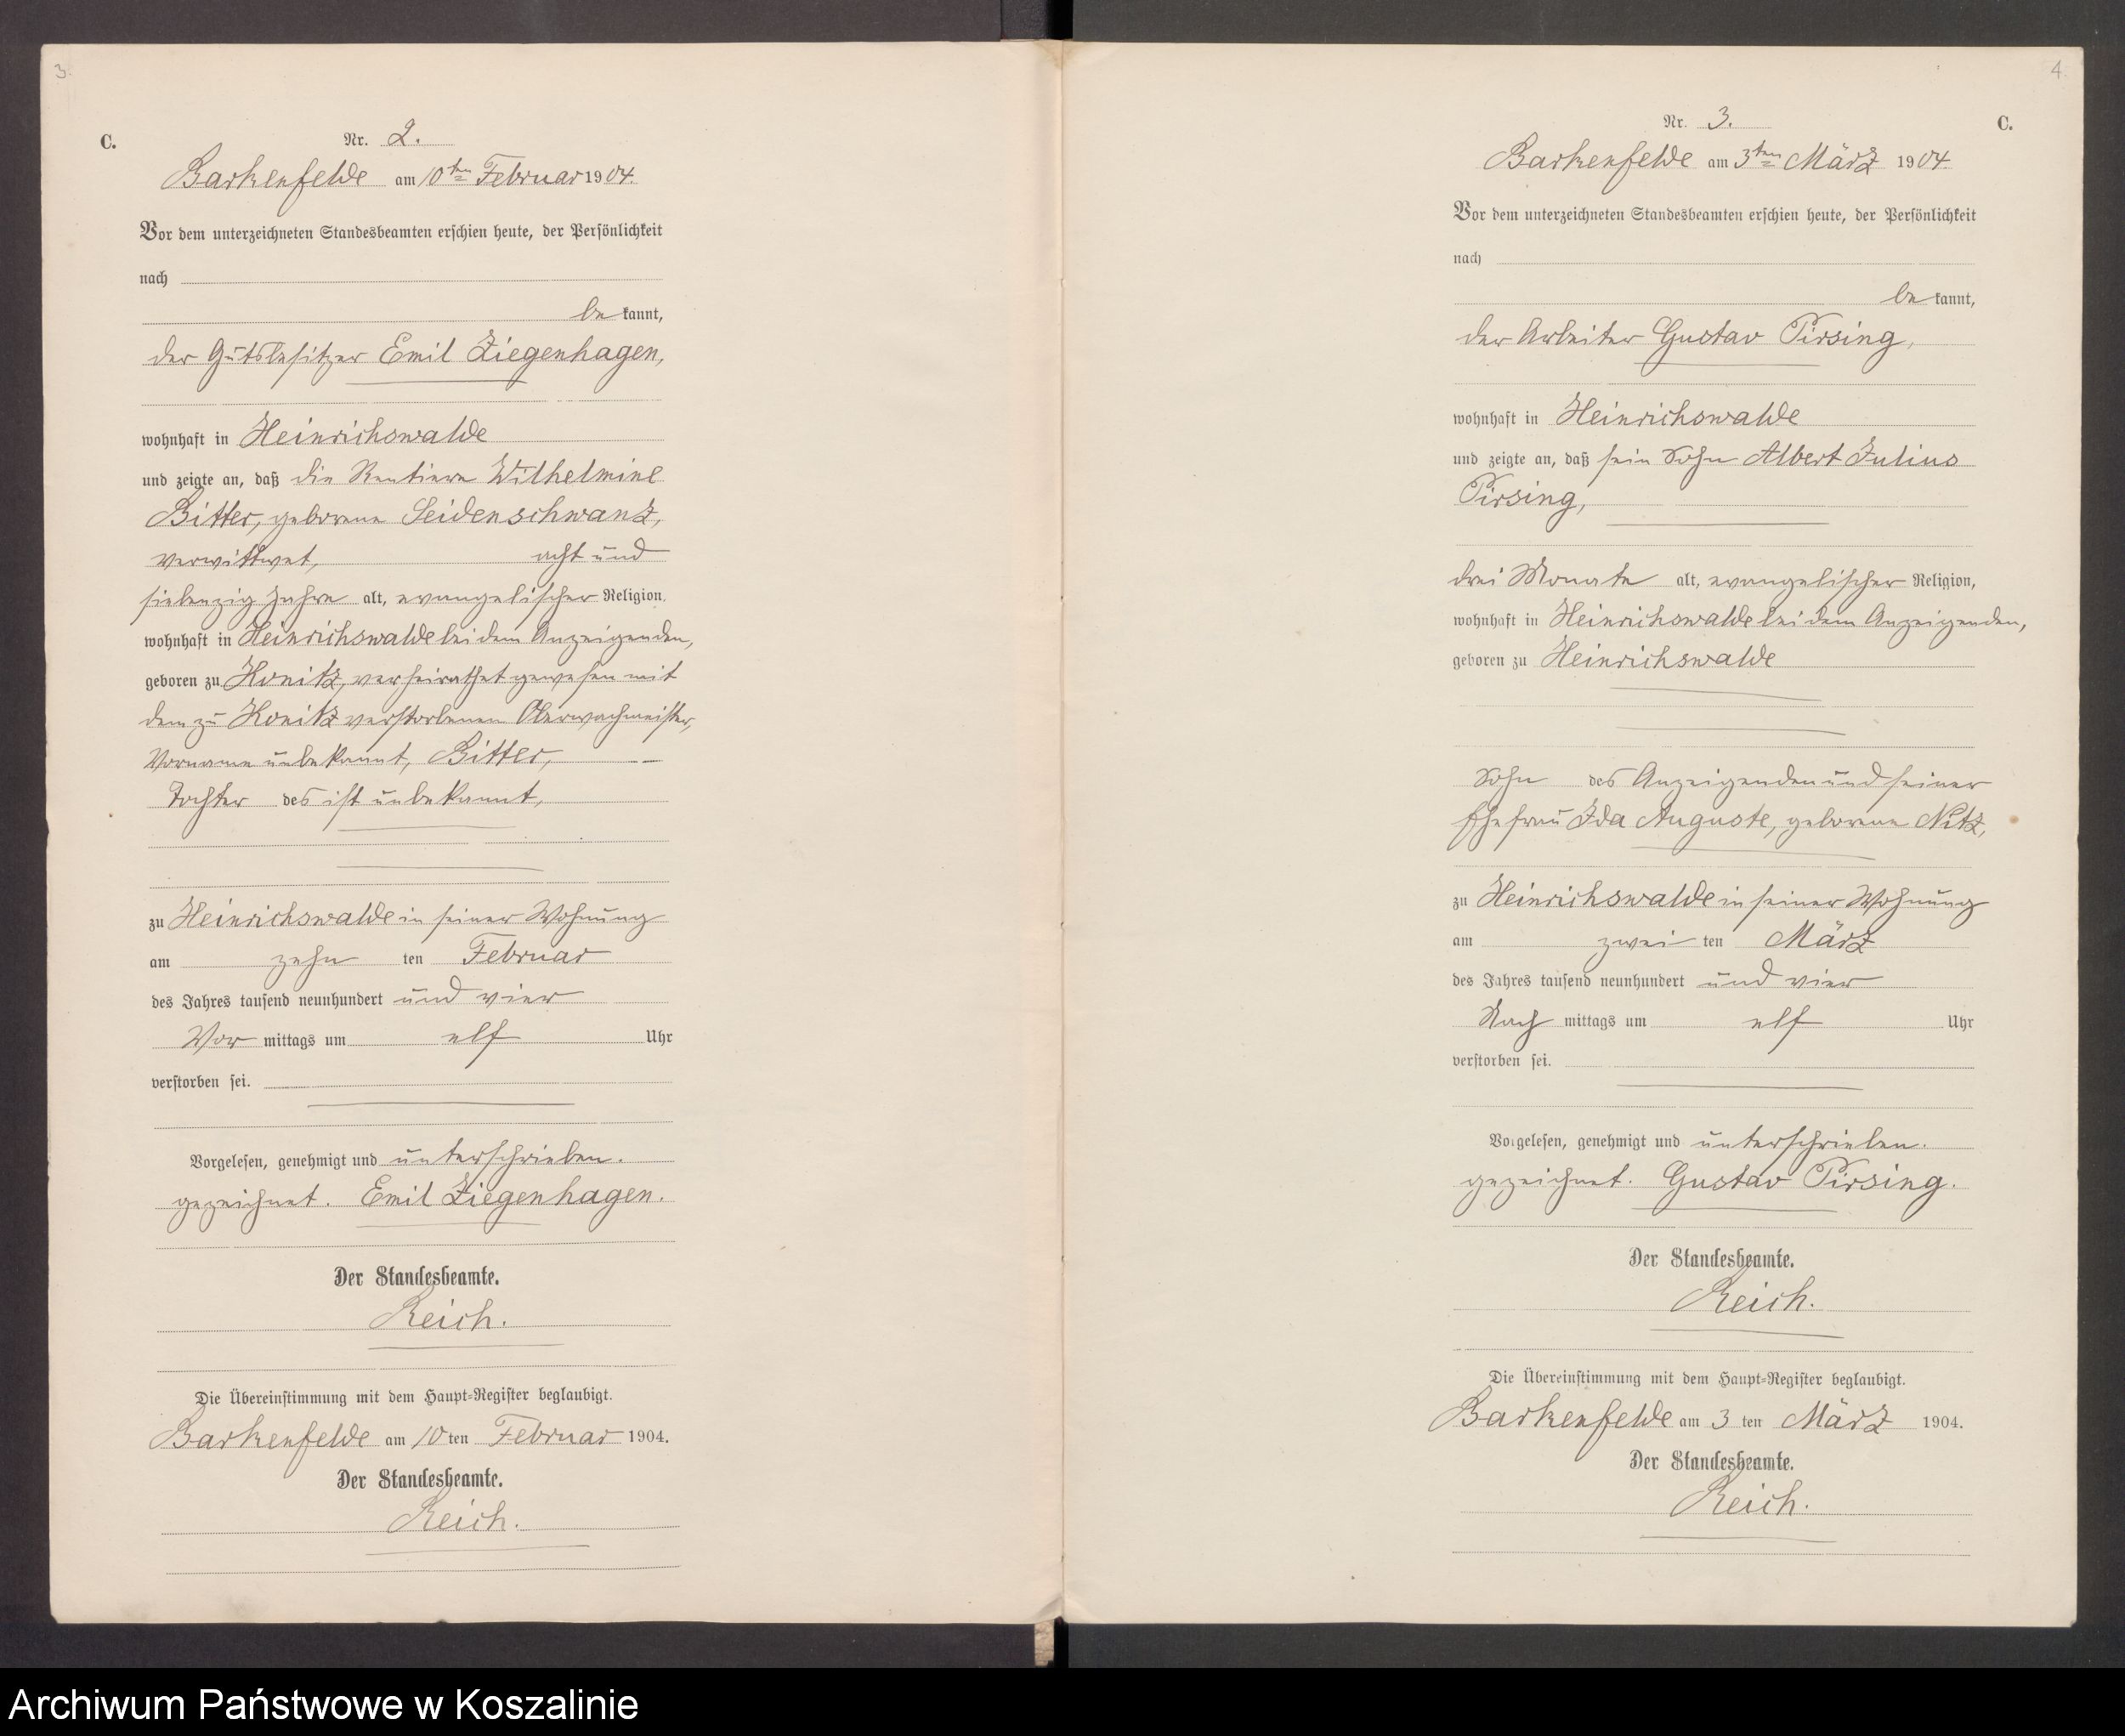 3.
C.
Nr. 2.
Barkenfelde am 10ten Februar 1904.
Vor dem unterzeichneten Standesbeamten erschien heute, der Persönlichkeit
nach
be kannt,
der Gutsbesitzer Emil Ziegenhagen,
wohnhaft in Heinrichswalde
und zeigte an, daß die Rentiere Wilhelmine
Bitter, geborene Seidenschwanz,
verwittwet, acht und
siebenzig Jahre alt, evangelischer Religion,
wohnhaft in Heinrichswalde bei dem Anzeigenden,
geboren zu Konitz, verheirathet gewesen mit
dem zu Konitz verstorbenen Oberwachmeister,
Vorname unbekannt, Bitter,
Tochter des ist unbekannt,
zu Heinrichswalde in seiner Wohnung
am zehn ten Februar
des Jahres tausend neunhundert und vier
Vor mittags um elf Uhr
verstorben sei.
Vorgelesen, genehmigt und unterschrieben.
gezeichnet. Emil Ziegenhagen.
Der Standesbeamte.
Reich.
Die Übereinstimmung mit dem Haupt-Register beglaubigt.
Barkenfelde am 10 ten Februar 1904.
Der Standesbeamte.
Reich.
4
Nr. 3.
C.
Barkenfelde am 3ten März 1904.
Vor dem unterzeichneten Standesbeamten erschien heute, der Persönlichkeit
nach
be kannt,
der Arbeiter Gustav Pirsing,
wohnhaft in Heinrichswalde
und zeigte an, daß sein Sohn Albert Julius
Pirsing,
drei Monate alt, evangelischer Religion,
wohnhaft in Heinrichswalde bei dem Anzeigenden,
geboren zu Heinrichswalde
Sohn des Anzeigenden und seiner
Ehefrau Ida Auguste, geborene Nitz,
zu Heinrichswalde in seiner Wohnung
am zwei ten März
des Jahres tausend neunhundert und vier
Nach mittags um elf Uhr
verstorben sei.
Vorgelesen, genehmigt und unterschrieben.
gezeichnet. Gustav Pirsing.
Der Standesbeamte.
Reich.
Die Übereinstimmung mit dem Haupt-Register beglaubigt.
Barkenfelde am 3 ten März 1904.
Der Standesbeamte.
Reich.
Archiwum Państwowe w Koszalinie